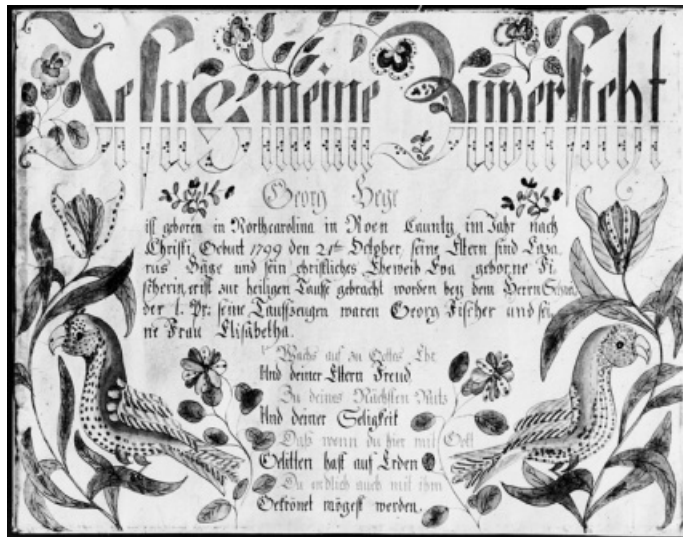 Jesus meine Zuversicht
Georg Hege
ist geboren in Northcarolina in Roen Caunty im Jahr nach
Christi Geburt 1799 den 21t October, seine Eltern sind Laza,
rus Häge und sein christliches Eheweib Eva geborne Fi,
scherin, er ist zur heiligen Tauffe gebracht worden bey dem Herrn
der l. Pr: seine Tauffzeugen waren Georg Fischer und sei,
ne Frau Elisabetha.
Wachs auf zu Gottes Ehr
Und deiner Eltern Freud
Zu deines Nächsten Nutz
Und deiner Seligkeit
Daß wenn du hier mit Gott
Gelitten hast auf Erden
Du endlich auch mit ihm
Gekrönet mögest werden.